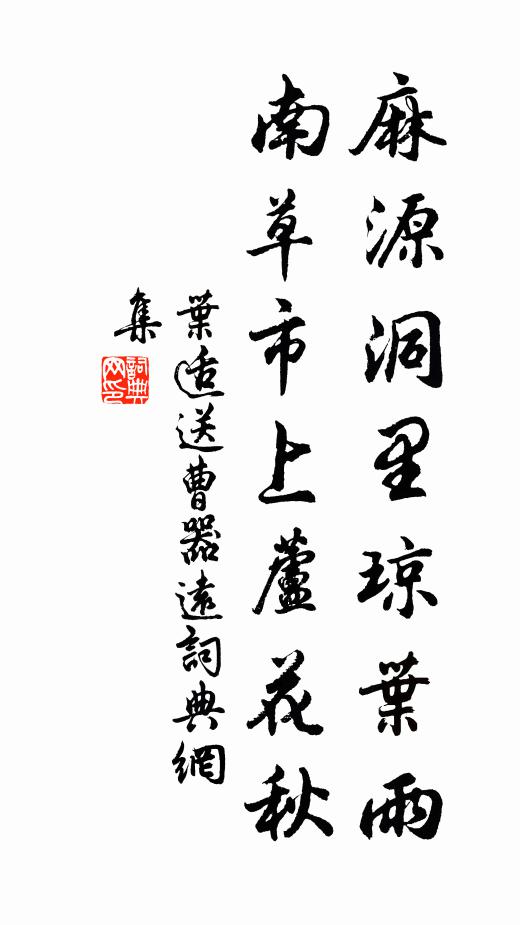 麻源洞里琼葉雨
南草市上蘆花秋
葉适送曹器遠詞典網
集
詞典
网印